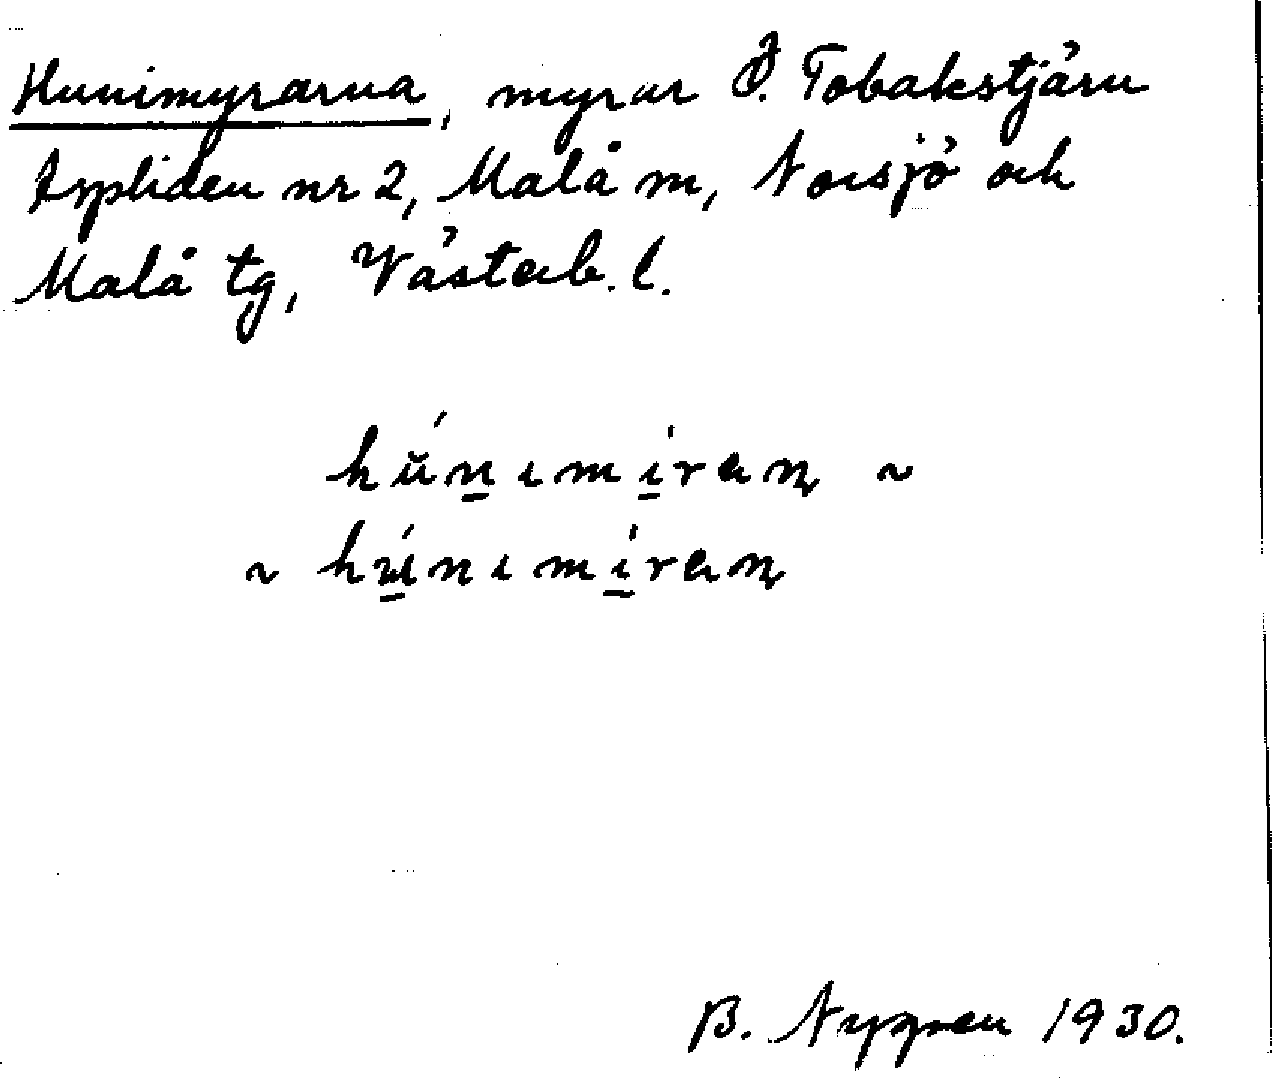 Hunimyrarna, myrar Ö. Tobakstjärn
Aspliden nr 2, Malå sn, Norsjö och
Malå tg, Västerb. l.
hú̆n̲ımı̲́raɳ ~
~ hú̲nımı̲́raɳ
B. Nygren 1930.